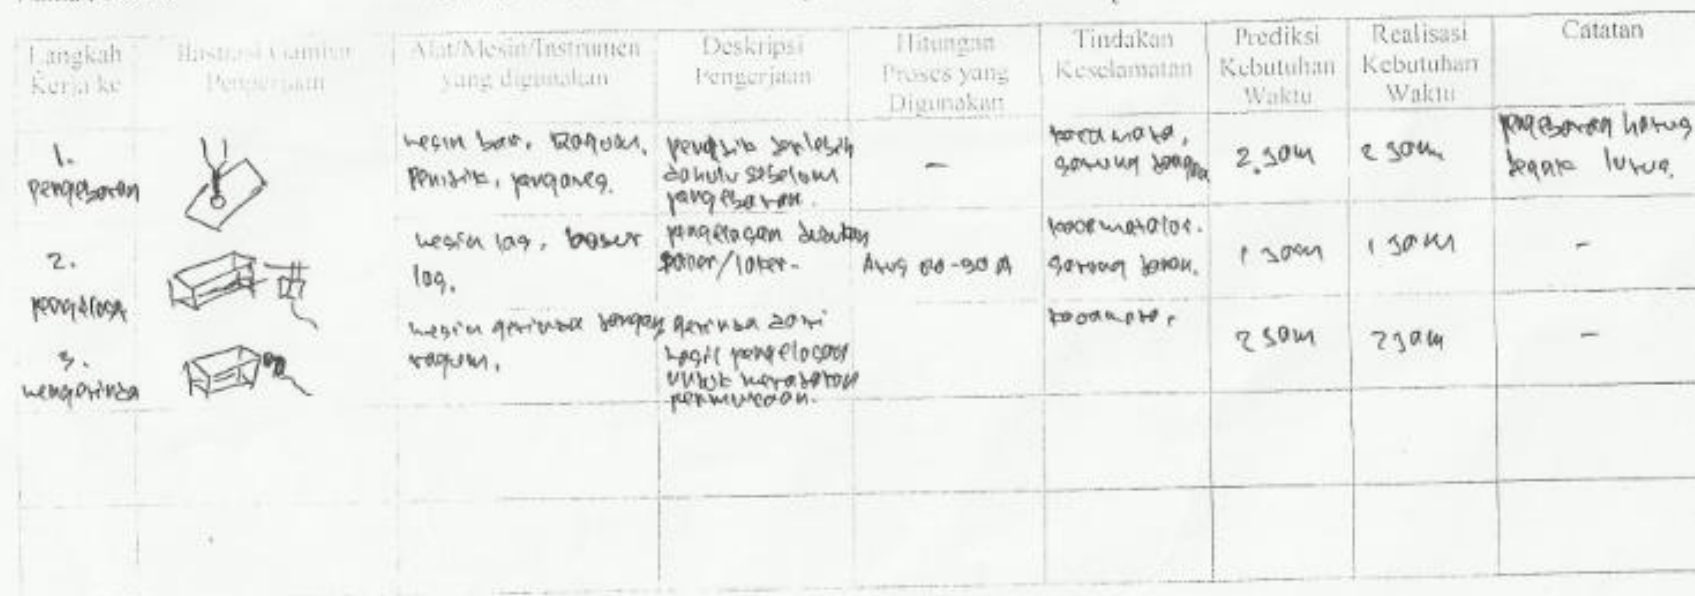 Langkah Kerja ke
Ilustrasi Gambar Pengerjaan
Alat/Mesin/Instrumen yang digunakan
Deskripsi Pengerjaan
Hitungan Proses yang Digunakan
Tindakan Keselamatan
Prediksi Kebutuhan Waktu
Realisasi Kebutuhan Waktu
Catatan
1.
pengeboran
mesin bor, ragum,
penitik,
penitik terlebih
dahulu sebelum
pengeboran.
-
kacamata,
sarung tangan
2 jam
2 jam
pengeboran harus
tegak lurus.
2.
mesin las,
las.
pengelasan
Arus 60-90 A
sarung tangan.
1 jam
1 jam
-
3.
menggerinda
mesin gerinda tangan
ragum.
gerinda dari
hasil pengelasan
untuk meratakan
permukaan.
kacamata,
2 jam
2 jam
-